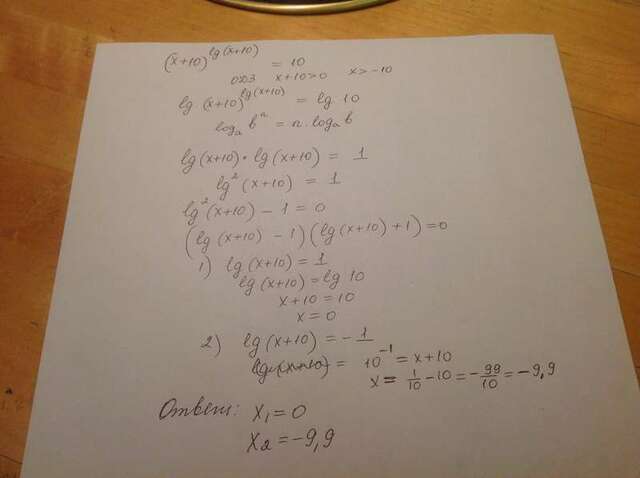 (x+10)^lg(x+10) = 10
ОДЗ x+10>0 x>-10
lg (x+10)^lg(x+10) = lg 10
logₐ bⁿ = n·logₐ b
lg(x+10)·lg(x+10) = 1
lg²(x+10) = 1
lg²(x+10) - 1 = 0
(lg(x+10) - 1)(lg(x+10)+1)=0
1) lg(x+10) = 1
lg(x+10) = lg 10
x+10 = 10
x = 0
2) lg(x+10) = -1
lg(x+10) = 10⁻¹ = x+10
x = 1/10 - 10 = -99/10 = -9,9
Ответ: x₁ = 0
x₂ = -9,9